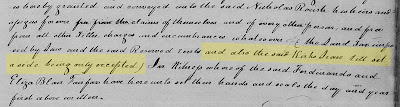 hereby granted and conveyed unto the said Nicholas Rourk his heirs and
assigns forever free from the claims of themselves and of every other person and free
from all other Titles charges and incumbrances whatsoever (the Land Tax
by Law and the said Reserved Rents and also the said Kates Town Lott set
aside being only excepted) In Witness whereof the said Ferdinando and
Eliza Blair Fairfax have hereunto set their hands and seals the day and year
first above written